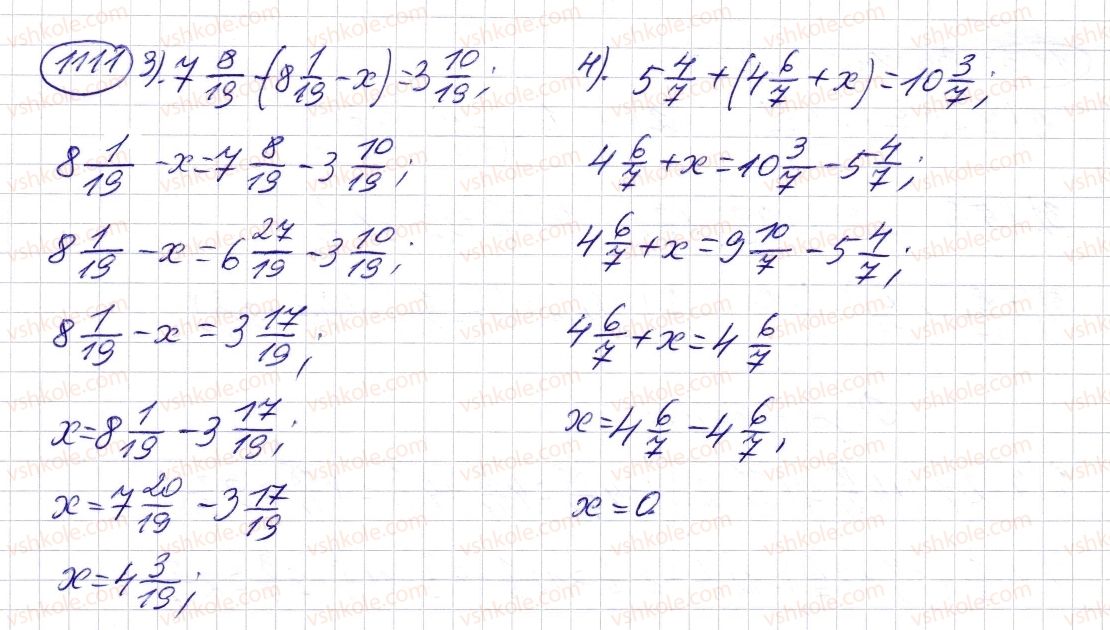 1111 3). 7 8/19 - (8 1/19 - x) = 3 10/19;
8 1/19 - x = 7 8/19 - 3 10/19;
8 1/19 - x = 6 27/19 - 3 10/19;
8 1/19 - x = 3 17/19;
x = 8 1/19 - 3 17/19;
x = 7 20/19 - 3 17/19
x = 4 3/19;
4). 5 4/7 + (4 6/7 + x) = 10 3/7;
4 6/7 + x = 10 3/7 - 5 4/7;
4 6/7 + x = 9 10/7 - 5 4/7;
4 6/7 + x = 4 6/7
x = 4 6/7 - 4 6/7,
x = 0.
vshkole.com